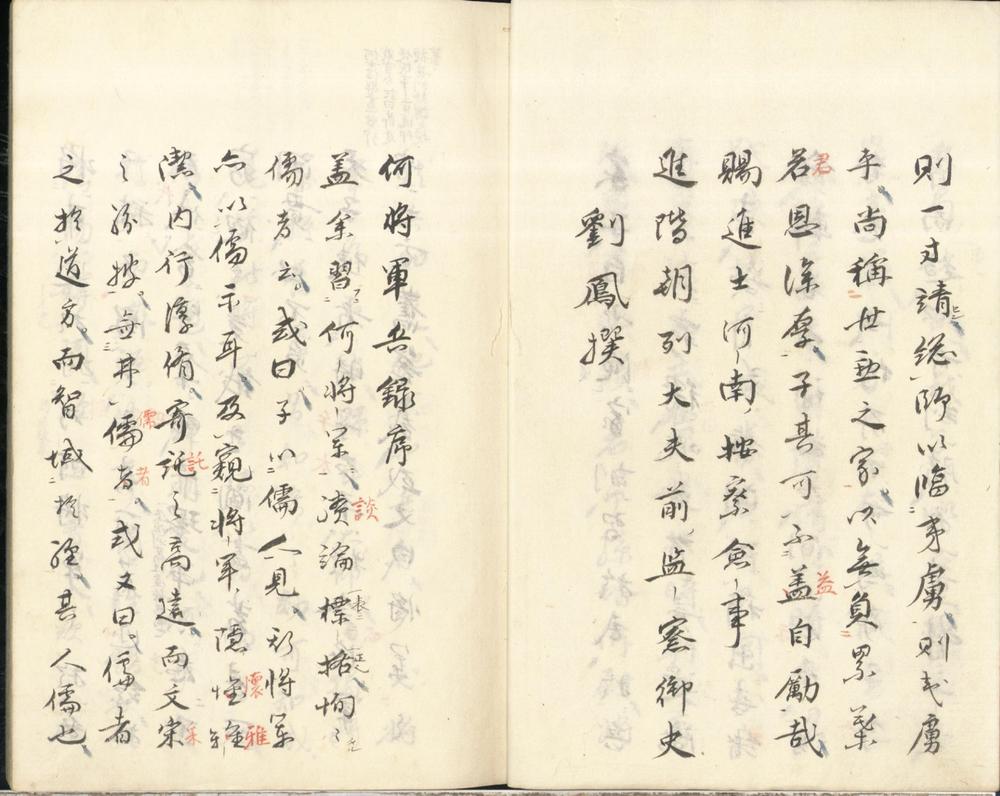 則一寸請総師以臨事虜則或虜
乎尚稱世勳之家以無負累葉
君恩深厚子其可不益自勵哉
賜進士河南按察僉事
進階朝列大夫前監察御史
劉鳳撰
何將軍兵錄序
盖余習何將軍讀論標括恂〻
儒者云或曰子以儒人見
爾將軍
亦以儒示耳及窺將軍隱
雅
潔內行淳脩寄託之高遠而文采
之紛披無非儒者或又曰儒者
之於道方而智域於經其人儒也